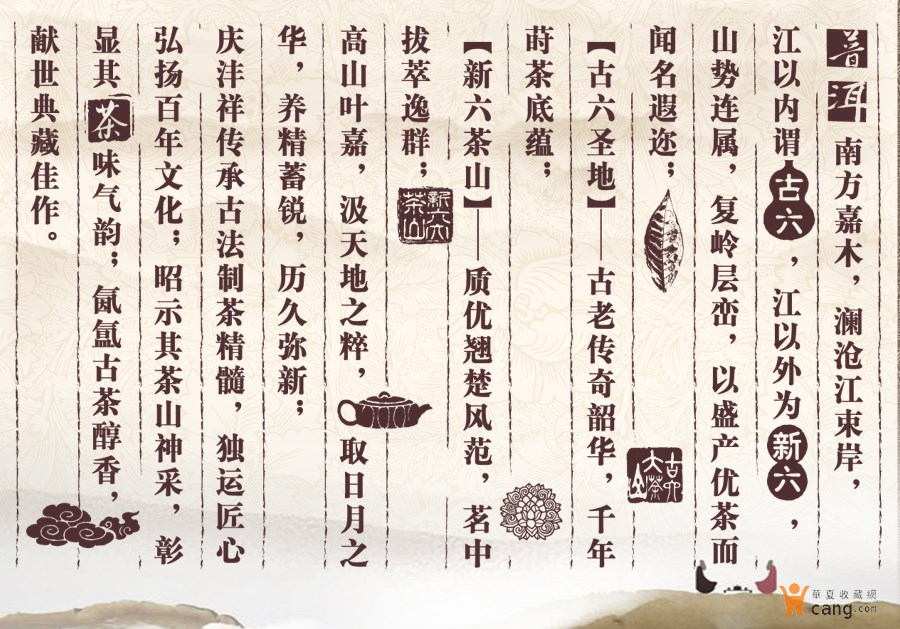 普洱 南方嘉木，澜沧江束岸，
江以内谓古六，江以外为新六，
山势连属，复岭层峦，以盛产优茶而
闻名遐迩；
古六大茶山
【古六圣地】——古老传奇韶华，千年
莳茶底蕴；
【新六茶山】——质优翘楚风范，茗中
拔萃逸群；
新六茶山
高山叶嘉，汲天地之粹，取日月之
华，养精蓄锐，历久弥新；
庆沣祥传承古法制茶精髓，独运匠心
弘扬百年文化；昭示其茶山神采，彰
显其茶味气韵；氤氲古茶醇香，
献世典藏佳作。
華夏收藏網
cang.com